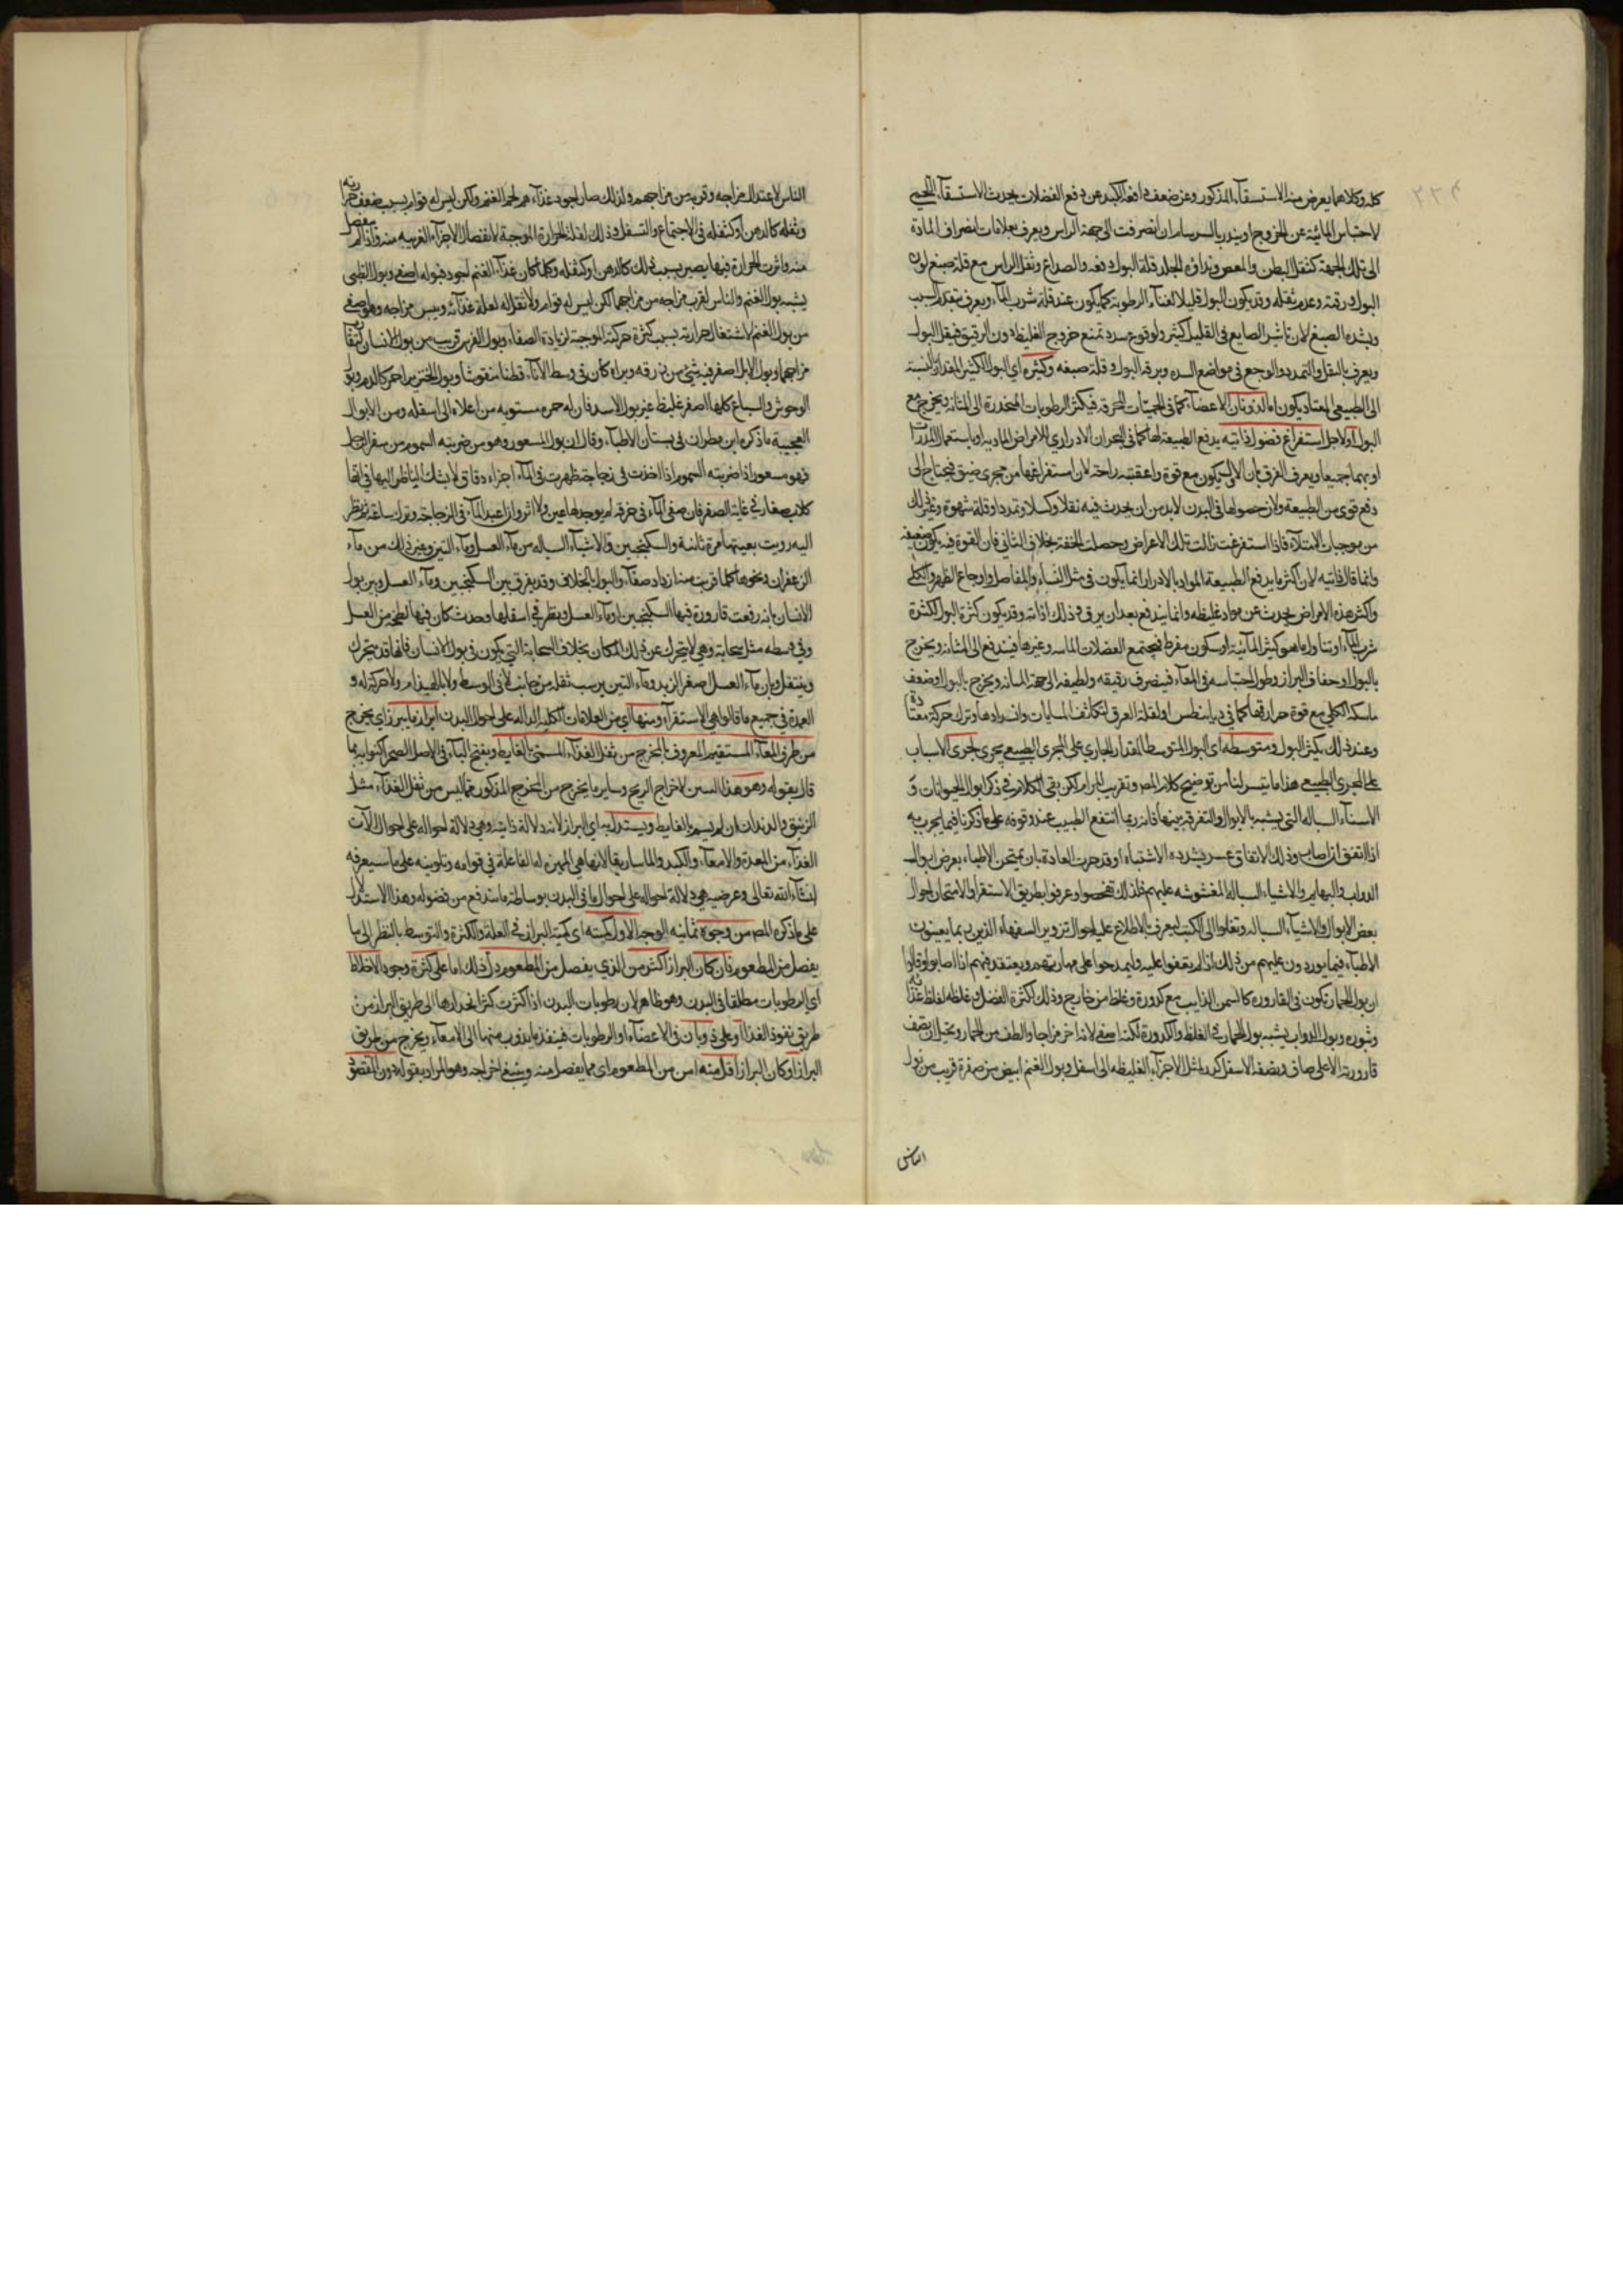 ٢٢٤
كله وكلاهما يعرض منه الاستسقاء المذكور وعن ضعف دافعة الكبد عن دفع الفضلات يحدث الاستسقاء اللحمي
لاحتباس المائية عن الخروج او ينذر بالسرسام ان انصرفت الى جهة الراس ويعرف بعلامات انصراف المادة
الى تلك الجهة كثقل البطن والمغص ونداوة الجلد قلة البول دفعه والصداع وثقل الراس مع قلة صبغ لون
البول ورقته وعدم ثقله وقد يكون البول قليلا لفناء الرطوبة كما يكون عند قلة شرب الماء ويعرف بتقدم السبب
وبشدة الصبغ لان تاثير الصابغ في القليل اكثر ولوقوع سدد تمنع خروج الغليظ دون الرقيق فيقل البول
ويعرف بالثقل والتمدد والوجع في مواضع السدة وبرقة البول وقلة صبغه وكثره اى البول الكثير المقدار بالنسبة
الى الطبيعي المعتاد يكون اما لذوبان الاعضاء كما في الحميات المحرقة فيكثر الرطوبات المنحدرة الى المثانة ويخرج مع
البول او لاجل استفراغ فضول ذاتيه بدفع الطبيعة لها كما في البحران الادراري للامراض المادية او باستعمال المدرات
او بهما جميعا ويعرف الفرق بان الاول يكون مع قوة واعقبته راحة لان استفراغها من مجرى ضيق فيحتاج الى
دفع قوى من الطبيعة ولان حصولها في البدن لابد من ان يحدث فيه ثقلا وكسلا وتمددا وقلة شهوة وغير ذلك
من موجبات الامتلاء فاذا استفرغت زالت تلك الاعراض وحصلت الخفة بخلاف الثاني فان القوة فيه يكون ضعيفه
وانما قال ذاتيه لان اكثر ما يدفع الطبيعة المواد بالادرار انما يكون في مثل النساء والمفاصل واوجاع الظهر والكلى
واكثر هذه الامراض يحدث عن مواد غليظه وانما يندفع بعد ان يرق وذلك اذابته وقد يكون كثرة البول لكثرة
شرب الماء او تناول ما هو كثير المائية او سكون مفرط فيجتمع الفضلات المائيه وغيرها فيندفع الى المثانه ويخرج
بالبول او جفاف البراز وطول احتباسه في المعاء فينصرف رقيقه ولطيفه الى جهة المثانه ويخرج بالبول او ضعف
ماسكة الكلى مع قوة حرارتها كما في ديابيطس او لقلة العرق لتكاثف المسامات وانسدادها وترك حركة معتادة
وعند ذلك يكثر البول ومتوسطه اى البول المتوسط المقدار الجاري على المجرى الطبيعي يجرى جرى الاسباب
على المجرى الطبيعي هذا ما تيسر لنا من توضيح كلام المص وتقريب المرام لكن بقى الكلام في ذكر ابوال الحيوانات و
الاشياء السياله التي يشبه بالابوال والتفرقة بينها فانه ربما انتفع الطبيب عند وقوفه على ما ذكرنا فيما يجرب به
اذا اتفق ان اصاب وذلك الاتفاق عسر بشدة الاشتباه وقد جرت العادة بان يمتحن الاطباء بعرض ابوال
الدواب والبهايم والاشياء السياله المغشوشه عليهم فلذلك تفحصوا وعرفوا بطريق الاستقراء والامتحان احوال
بعض الابوال والاشياء السياله ونقلوا الى الكتب ليعرف بالاطلاع عليها احوال تزوير السفهاء الذين ربما يعبثون
الاطباء فيما يوردون عليهم من ذلك ان لم يقفوا عليه وليمدحوا على مهارتهم ويعتقد فيهم اذا اصابوا وقالوا
ان بول الحمار تكون في القارورة كالسمن الذايب مع كدورة وغلظ من خارج وذلك لكثرة الفضل وغلظه لغلظ غذائه
وبول الدواب يشبه بول الحمار في الغلظ والكدورة لكنه اصفى لانه احر مزاجا والطف من الحمار ويخيل ان نصف
قارورته الاعلى صاف ونصفه الاسفل كدر لميل الاجزاء الغليظه الى اسفل وبول الغنم ابيض من صفرة قريب من بول
الناس
الناس لاعتدال مزاجه وقربه من مزاجهم ولذلك صار اجود غذاءهم لحم الغنم ولكن ليس له قوام بسبب ضعف حرارته
وثفله كالدهن او كثفله في الاجتماع والتسفل وذلك لقلة الحرارة الموجبة لانفصال الاجزاء الغريبه منه واذا لم ينفصل
منه واثرت الحرارة فيها يصير بسبب ذلك كالدهن او كثفله وكلما كان غذاء الغنم اجود فبوله اصفى وبول الظبى
يشبه بول الغنم والناس لقرب مزاجه من مزاجهما لكن ليس له قوام ولا ثفل له لقلة غذائه ويبس مزاجه وهو اصفى
من بول الغنم لاشتعال حرارته بسبب كثرة حركته الموجبة لزيادة الصفاء وبول الفرس قريب من بول الانسان
مزاجهما وبول الابل اصفر فيه شئ من زرقه ويراه كان في وسط الاناء قطنا منفوشا وبول الخنزير احمر كالدم وبول
الوحوش والسباع كلها اصفر غليظ غير بول الاسد فان له حمره مستويه من اعلاه الى اسفله ومن الابوال
العجيبة ما ذكره ابن مطران في بستان الاطباء وقال ان بول المسعور وهو من ضربته السموم من سفر
فهو مسعور اذا ضربته السموم اذا اخذت في زجاجة ظهرت في الماء اجزاء دقاق لا يشك الناظر اليها في انها
كلاب صغار في غاية الصغر فان صفى الماء في خرقة لم يوجد لها عين ولا اثر واذا اعيد الماء في الزجاجة وترك ساعة ثم نظر
اليه رويت بعينها مرة ثانية والسكنجبين والاشياء السياله من ماء العسل وماء التين وغير ذلك من ماء
الزعفران ونحوها كلما قربت منه ازداد صفاء والبول بالخلاف وقد يفرق بين السكنجبين وماء العسل وبين بول
الانسان بانه رفعت قارورة فيها السكنجبين او ماء العسل ونظر في اسفلها وجدت كان فيها لطخه من العسل
وفي وسطه مثل سحابة وهي لا يتحرك عن ذلك المكان بخلاف السحابة التي يكون في بول الانسان فانها قد يتحرك
وينتقل وبان ماء العسل اصفر الزبد وماء التين يرسب ثفله من جانب لا في الوسط ولا بالهندام ولا حركة له و
العمدة في جميع ما قالوا هي الاستقراء ومنها اي من العلامات الكليه الداله على احوال البدن البراز ما يبرز اى يخرج
من طرف المعاء المستقيم المعروف بالمخرج من ثفل الغذاء المسمى بالغايط وبفتح الباء في الاصل الصحراء كنوا به بما
قال بقوله وهو هذا السين لاخراج الريح وساير ما يخرج من المخرج المذكور مما ليس من ثفل الغذاء مثل
الزيبق والديدان ان لم يسم بالغايط ويستدل به اى البراز لانه دلالة ذاتيه وهي دلالة احواله على احوال الآت
الغذاء من المعدة والامعاء والكبد والماساريقا لانها هي المميزة له الفاعلة في قوامه وتلوينه على ما سيعرفه
انشاء الله تعالى وعرضيه هي دلالة احواله على احوال ما في البدن بوساطة ما يندفع من فضوله وهذا الاستدلال
على ما ذكره المص من وجوه ثمانيه الوجه الاول كميته اى كمية البراز في القلة والكثرة والتوسط بالنظر الى ما
يفصل من المطعوم فان كان البراز اكثر من الذي يفصل من المطعوم دل ذلك اما على كثرة وجود الاخلاط
اى الرطوبات مطلقا في البدن وهو ظاهر لان رطوبات البدن اذا كثرت كثر انحدارها الى طريق البراز من
طريق نفوذ الغذا او على ذوبان في الاعضاء او الرطوبات فينفذ ما يذوب منها الى الامعاء ويخرج من طريق
البراز او كان البراز اقل منه اى من المطعوم اى مما يفصل منه وينبغي اخراجه وهو المراد بقوله دون